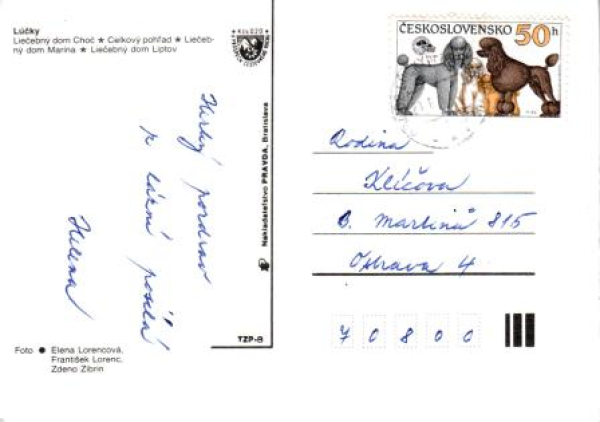 Lúčky
Liečebný dom Choč ★ Celkový pohľad ★ Liečeb-
ný dom Marina ★ Liečebný dom Liptov
Hezký pozdrav
z lázní posílá
Helena
Foto ● Elena Lorencová,
František Lorenc,
Zdeno Zibrin
Nakladateľstvo PRAVDA, Bratislava
TZP-B
ČESKOSLOVENSKO 50h
Rodina
Klíčova
B. Martinů 815
Ostrava 4
70800